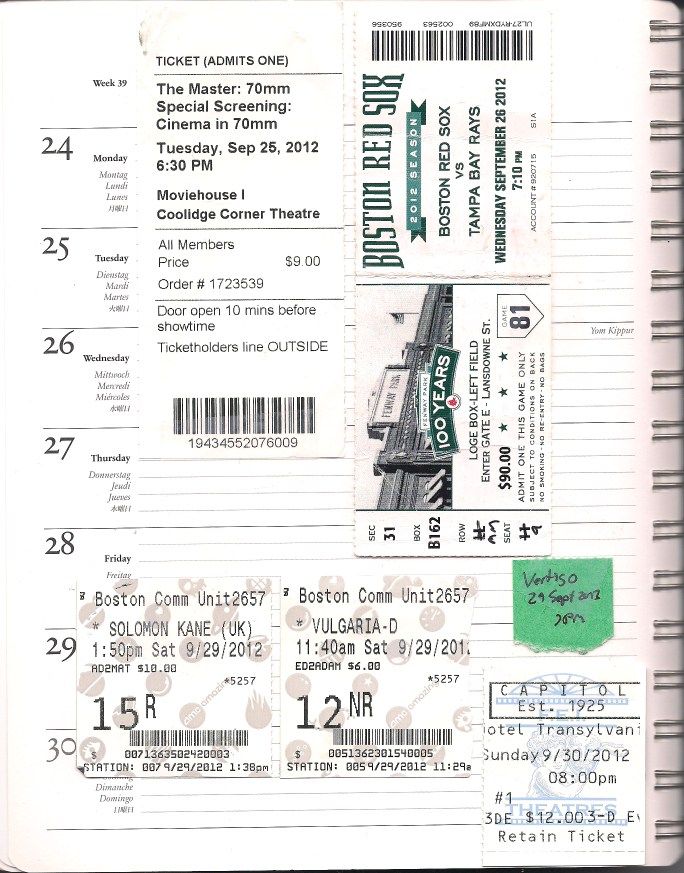 Week 39
24
Monday
Montag
Lundi
Lunes
月曜日
25
Tuesday
Dienstag
Mardi
Martes
火曜日
26
Wednesday
Mittwoch
Mercredi
Miércoles
水曜日
27
Thursday
Donnerstag
Jeudi
Jueves
28
Friday
Freitag
29
30
Dimanche
Domingo
日曜日
Yom Kippur
TICKET (ADMITS ONE)
The Master: 70mm
Special Screening:
Cinema in 70mm
Tuesday, Sep 25, 2012
6:30 PM
Moviehouse I
Coolidge Corner Theatre
All Members
Price $9.00
Order # 1723539
Door open 10 mins before
showtime
Ticketholders line OUTSIDE
19434552076009
950356 002563 UL27-RYDXMF89
BOSTON RED SOX
2012 SEASON
BOSTON RED SOX
VS
TAMPA BAY RAYS
WEDNESDAY SEPTEMBER 26 2012
7:10 PM
ACCOUNT # 920715 S1A
FENWAY PARK
FENWAY PARK
100 YEARS
LOGE BOX-LEFT FIELD
ENTER GATE E - LANSDOWNE ST.
$90.00
GAME
81
ADMIT ONE THIS GAME ONLY
SUBJECT TO CONDITIONS ON BACK
NO SMOKING · NO RE-ENTRY · NO BAGS
SEC 31
BOX B162
ROW
SEAT
Boston Comm Unit2657
* SOLOMON KANE (UK)
1:50pm Sat 9/29/2012
AD2MAT $10.00
*5257
15 R
$ 0071363502420003
STATION: 007 9/29/2012 1:38pm
Boston Comm Unit2657
* VULGARIA-D
11:40am Sat 9/29/201
ED2ADAM $6.00
*5257
12 NR
$ 0051362301540005
STATION: 005 9/29/2012 11:29a
Vertigo
29 Sept 2012
7PM
CAPITOL
Est. 1925
otel Transylvani
Sunday9/30/2012
08:00pm
#1
THEATRES
3DE $12.003-D Ev
Retain Ticket